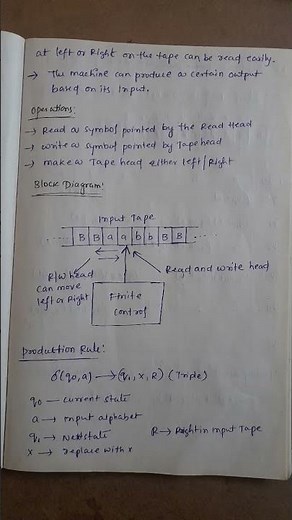 at left or Right on the tape can be read easily.
→ The machine can produce a certain output
based on its Input.
Operations:
→ Read a symbol pointed by the Read Head
→ write a symbol pointed by Tape head
→ make a Tape head either left/Right
Block Diagram:
Input Tape
... B B a a b b B B ...
R/W head
can move
left or Right
Read and write head
Finite
Control
Production Rule:
δ(q0,a) → (q1, x, R) (Triple)
q0 — current state
a → input alphabet
q1 → Next state
R → Right in input Tape
x → replace with x